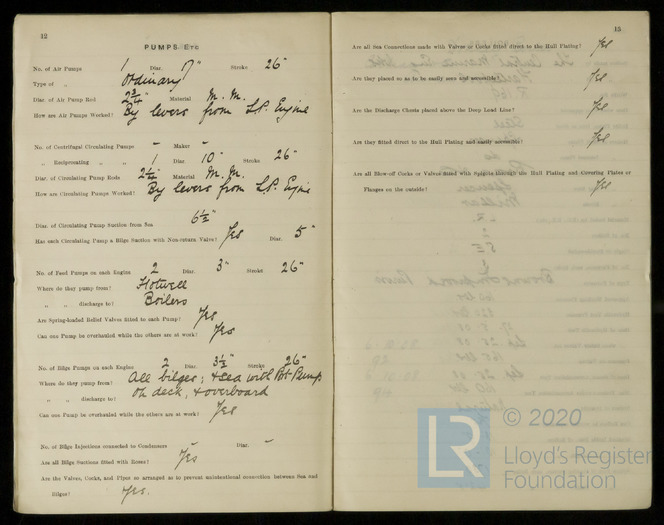 12
PUMPS, Etc
No. of Air Pumps 1 Diar. 17" Stroke 26"
Type of " Ordinary
Diar. of Air Pump Rod 2 3/4" Material M. M.
How are Air Pumps Worked? By levers from L.P. Engine
No. of Centrifugal Circulating Pumps - Maker -
" Reciprocating " " 1 Diar. 10" Stroke 26"
Diar. of Circulating Pump Rods Material M. M.
How are Circulating Pumps Worked? By levers from L.P. Engine
Diar. of Circulating Pump Suction from Sea 6 1/2"
Has each Circulating Pump a Bilge Suction with Non-return Valve? Yes Diar. 5"
No. of Feed Pumps on each Engine 2 Diar. 3" Stroke 26"
Where do they pump from? Hotwell
" " discharge to? Boilers
Are Spring-loaded Relief Valves fitted to each Pump? Yes
Can one Pump be overhauled while the others are at work? Yes
No. of Bilge Pumps on each Engine 2 Diar. 3 1/2" Stroke 26"
Where do they pump from? All bilges, & sea with Pump.
" " discharge to? On deck, & overboard
Can one Pump be overhauled while the others are at work? Yes
No. of Bilge Injections connected to Condensers - Diar. -
Are all Bilge Suctions fitted with Roses? Yes
Are the Valves, Cocks, and Pipes so arranged as to prevent unintentional connection between Sea and
Bilges? Yes.
13
Are all Sea Connections made with Valves or Cocks fitted direct to the Hull Plating? Yes
Are they placed so as to be easily seen and accessible? Yes
Are the Discharge Chests placed above the Deep Load Line? Yes
Are they fitted direct to the Hull Plating and easily accessible? Yes
Are all Blow-off Cocks or Valves fitted with Spigots through the Hull Plating and Covering Plates or
Flanges on the outside? Yes
LR © 2020
Lloyd's Register
Foundation